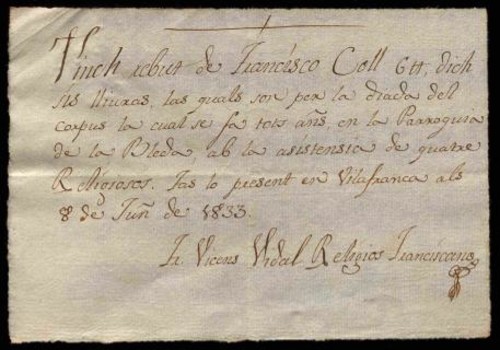 Tinch rebut de Francisco Coll 6 tt, dich
sis lliuras, las quals son per la diada del
corpus la cual se fa tots añs, en la Parroquia
de la Bleda, ab la asistensia de quatre
Religiosos. Fas lo present en Vilafranca als
8 de Juñ de 1833.
Fr. Vicens Vidal Religios Franciscano